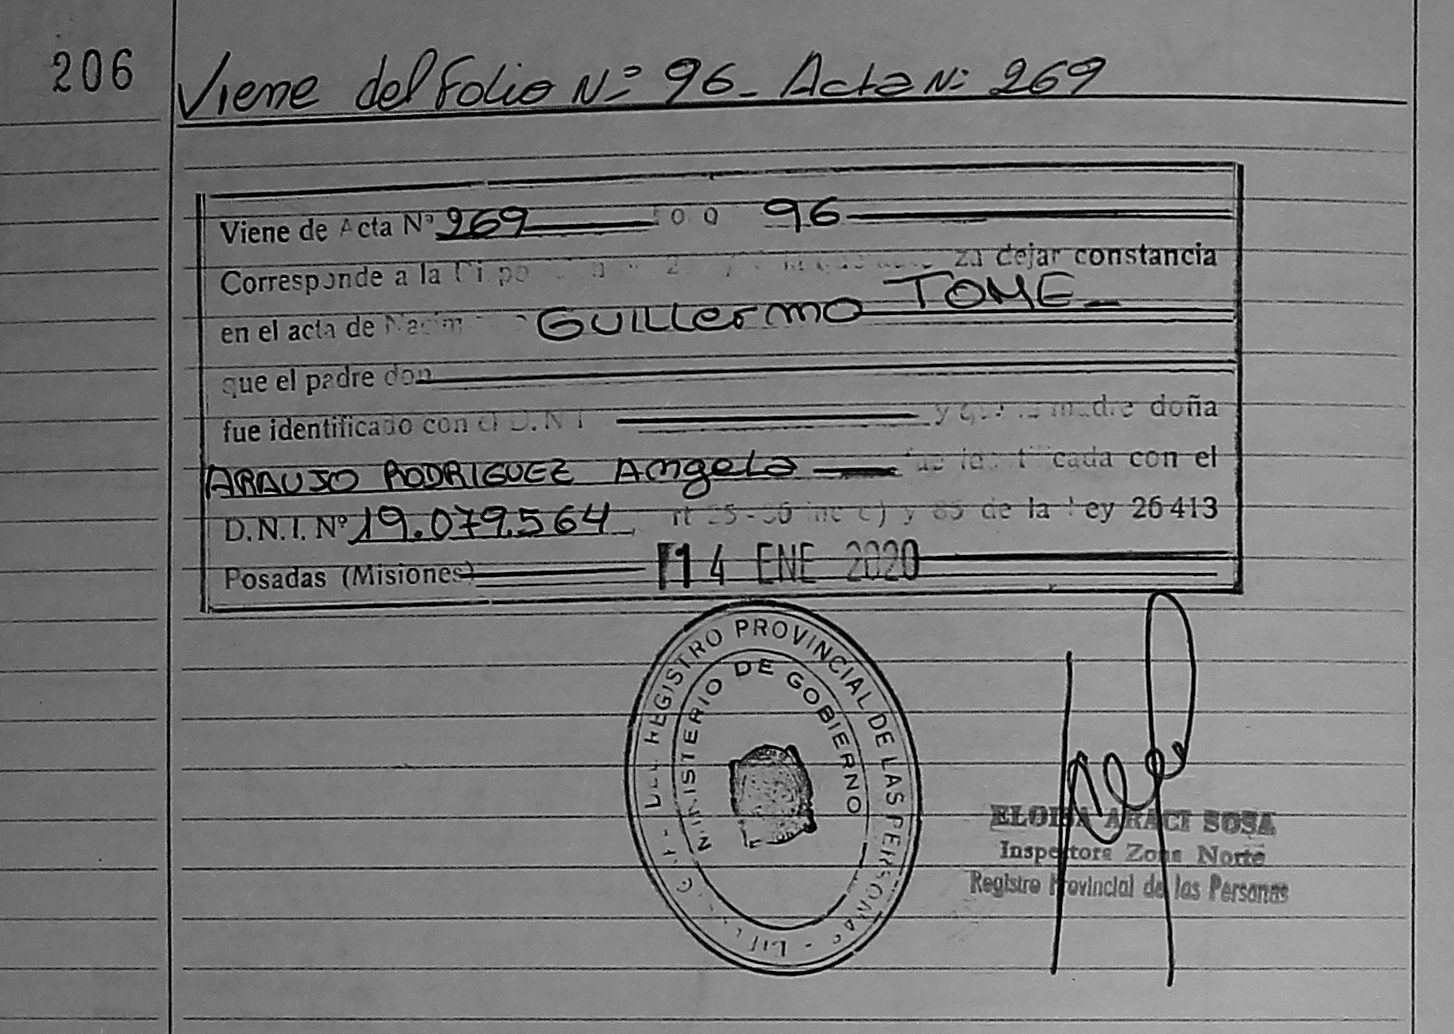 206
Viene del Folio Nº 96_ Acta Nº 269
Viene de Acta Nº 269 96
Corresponde a la dejar constancia
en el acta de Guillermo TOME_
que el padre don
fue identificado con el D.N.I. y que la madre doña
ARAUJO RODRIGUEZ Angela con el
D.N.I. Nº 19.079.564 y 85 de la Ley 26413
Posadas (Misiones) 14 ENE 2020
REGISTRO PROVINCIAL DE LAS PERSONAS
MINISTERIO DE GOBIERNO
ELOISA ARACI SOSA
Inspectora Zona Norte
Registro Provincial de las Personas